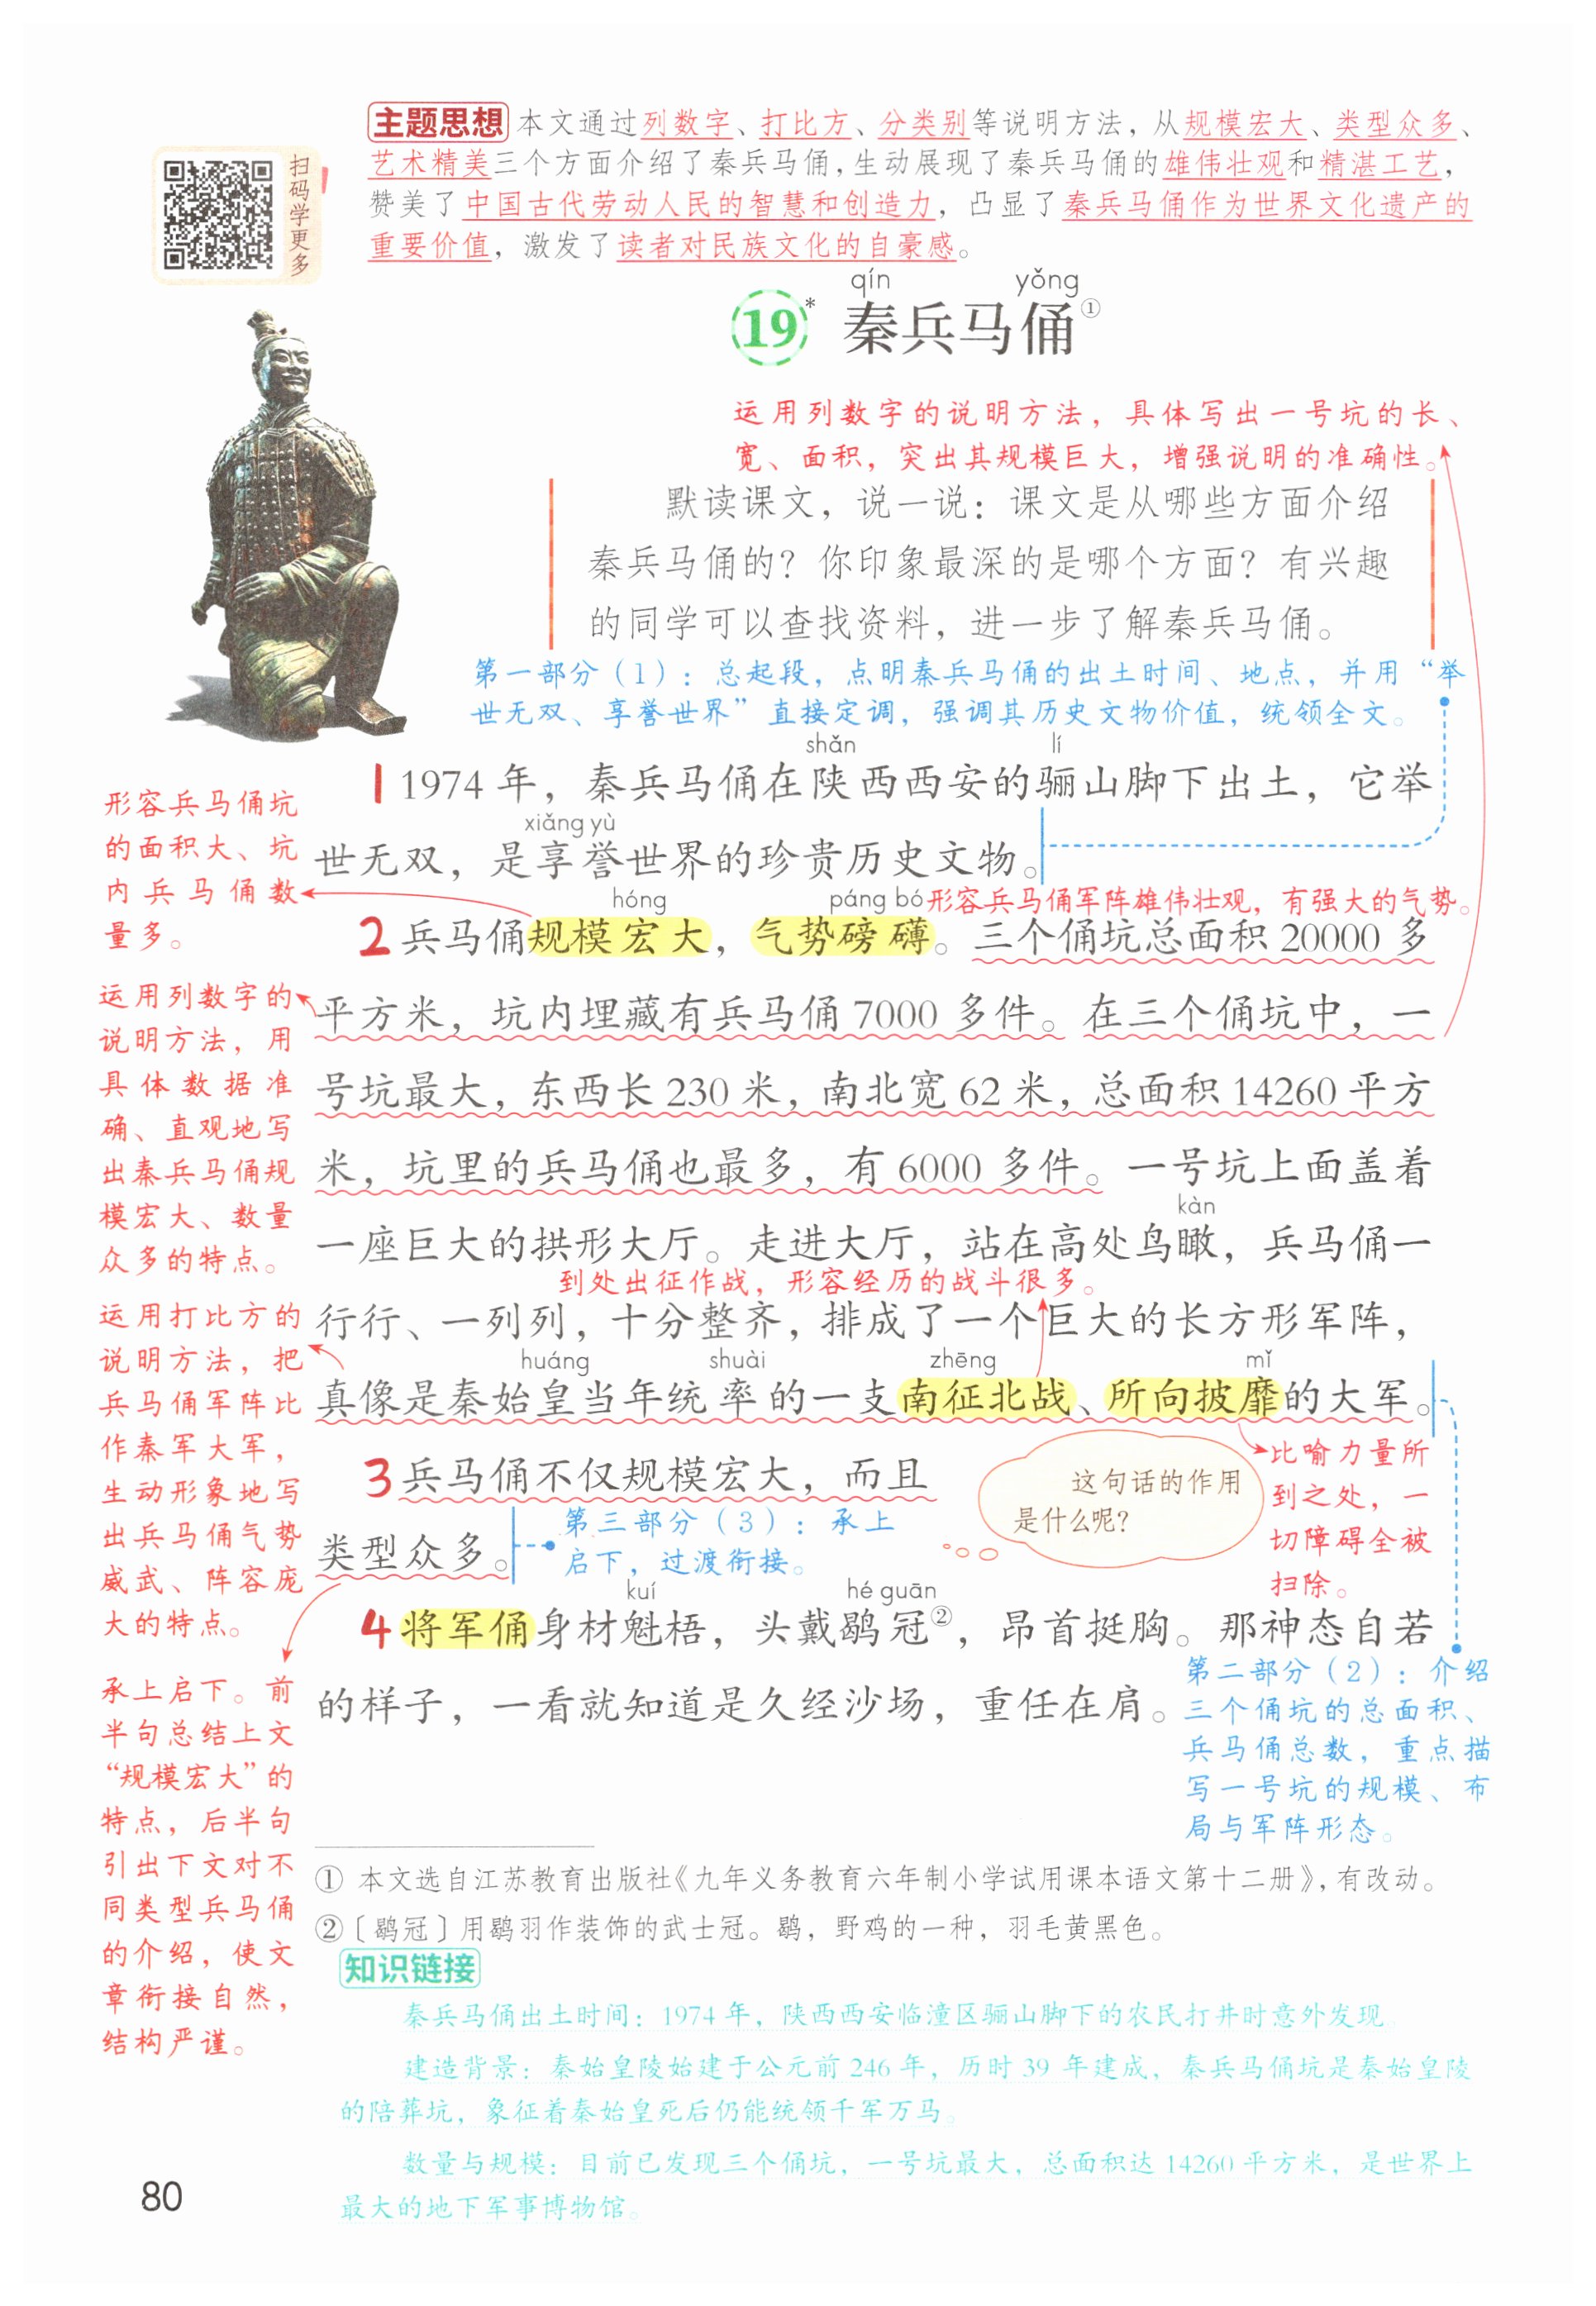 主题思想 本文通过列数字、打比方、分类别等说明方法，从规模宏大、类型众多、
艺术精美三个方面介绍了秦兵马俑，生动展现了秦兵马俑的雄伟壮观和精湛工艺，
赞美了中国古代劳动人民的智慧和创造力，凸显了秦兵马俑作为世界文化遗产的
重要价值，激发了读者对民族文化的自豪感。
扫码学更多
qín yǒng
19* 秦兵马俑①
运用列数字的说明方法，具体写出一号坑的长、
宽、面积，突出其规模巨大，增强说明的准确性。
默读课文，说一说：课文是从哪些方面介绍
秦兵马俑的？你印象最深的是哪个方面？有兴趣
的同学可以查找资料，进一步了解秦兵马俑。
第一部分（1）：总起段，点明秦兵马俑的出土时间、地点，并用“举
世无双、享誉世界”直接定调，强调其历史文物价值，统领全文。
shǎn lí
1 1974 年，秦兵马俑在陕西西安的骊山脚下出土，它举
xiǎng yù
世无双，是享誉世界的珍贵历史文物。
形容兵马俑坑
的面积大、坑
内兵马俑数
量多。
hóng páng bó
形容兵马俑军阵雄伟壮观，有强大的气势。
2 兵马俑规模宏大，气势磅礴。三个俑坑总面积 20000 多
平方米，坑内埋藏有兵马俑 7000 多件。在三个俑坑中，一
号坑最大，东西长 230 米，南北宽 62 米，总面积 14260 平方
米，坑里的兵马俑也最多，有 6000 多件。一号坑上面盖着
kàn
一座巨大的拱形大厅。走进大厅，站在高处鸟瞰，兵马俑一
到处出征作战，形容经历的战斗很多。
行行、一列列，十分整齐，排成了一个巨大的长方形军阵，
huáng shuài zhēng mǐ
真像是秦始皇当年统率的一支南征北战、所向披靡的大军。
运用列数字的
说明方法，用
具体数据准
确、直观地写
出秦兵马俑规
模宏大、数量
众多的特点。
运用打比方的
说明方法，把
兵马俑军阵比
作秦军大军，
生动形象地写
出兵马俑气势
威武、阵容庞
大的特点。
比喻力量所
到之处，一
切障碍全被
扫除。
3 兵马俑不仅规模宏大，而且
类型众多。
这句话的作用
是什么呢？
第三部分（3）：承上
启下，过渡衔接。
kuí hé guān
4 将军俑身材魁梧，头戴鹖冠②，昂首挺胸。那神态自若
的样子，一看就知道是久经沙场，重任在肩。
第二部分（2）：介绍
三个俑坑的总面积、
兵马俑总数，重点描
写一号坑的规模、布
局与军阵形态。
承上启下。前
半句总结上文
“规模宏大”的
特点，后半句
引出下文对不
同类型兵马俑
的介绍，使文
章衔接自然，
结构严谨。
① 本文选自江苏教育出版社《九年义务教育六年制小学试用课本语文第十二册》，有改动。
②〔鹖冠〕用鹖羽作装饰的武士冠。鹖，野鸡的一种，羽毛黄黑色。
知识链接
秦兵马俑出土时间：1974 年，陕西西安临潼区骊山脚下的农民打井时意外发现
建造背景：秦始皇陵始建于公元前 246 年，历时 39 年建成，秦兵马俑坑是秦始皇陵
的陪葬坑，象征着秦始皇死后仍能统领千军万马。
数量与规模：目前已发现三个俑坑，一号坑最大，总面积达 14260 平方米，是世界上
最大的地下军事博物馆。
80